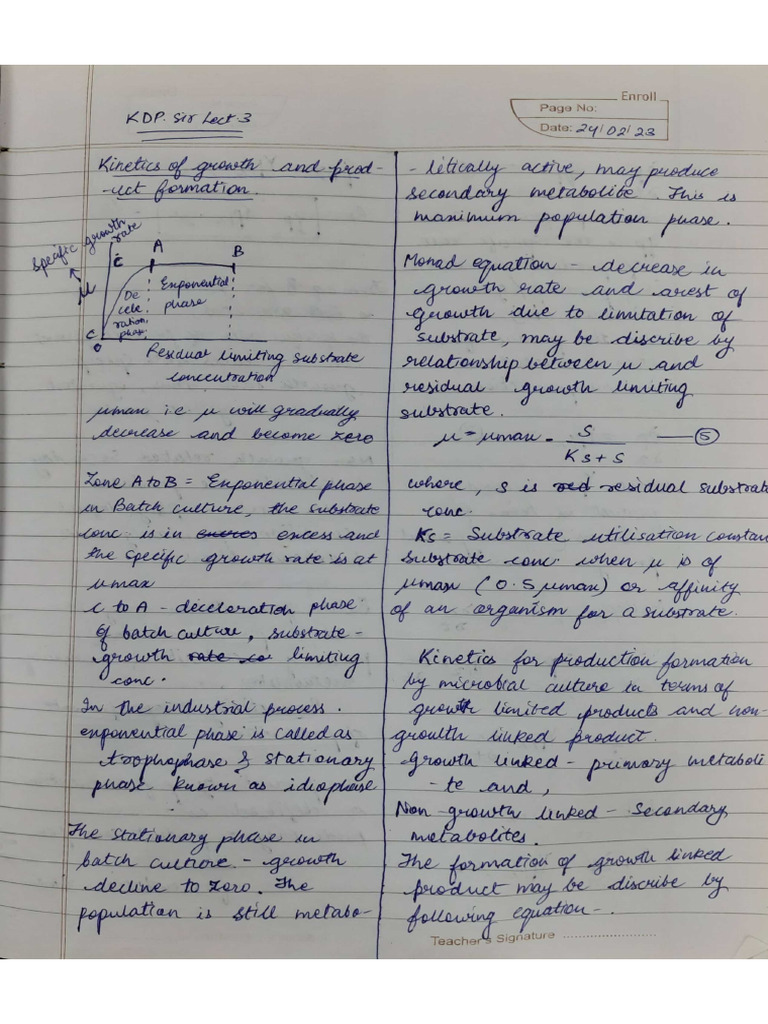 Enroll
Page No:
Date: 24/02/23
KDP. Sir Lect-3
Kinetics of growth and prod-
-uct formation.
Specific growth
rate
μ
C
A
B
De
cele
ration
phase
Exponential
phase
C
0
Residual limiting substrate
concentration
μmax i.e μ will gradually
decrease and become zero
Zone A to B = Exponential phase
in Batch culture, the substrate
conc is in excess and
the specific growth rate is at
μmax
C to A - deceleration phase
of batch culture, substrate-
growth rate co limiting
conc.
In the industrial process.
exponential phase is called as
trophophase & stationary
phase known as idiophase
The stationary phase in
batch culture - growth
decline to zero. The
population is still metabo-
-litically active, may produce
secondary metabolite. This is
maximum population phase.
Monad equation - decrease in
growth rate and arest of
growth due to limitation of
substrate, may be discribe by
relationship between μ and
residual growth limiting
substrate.
μ = μmax - S / Ks + S —⑤
where, S is red residual substrate
conc.
Ks = Substrate utilisation constan
substrate conc. when μ is of
μmax (0.5 μmax) or affinity
of an organism for a substrate.
Kinetics for production formation
by microbial culture in terms of
growth limited products and non-
growth linked product.
growth linked - primary metaboli
-te and,
Non-growth linked - Secondary
metabolites.
The formation of growth linked
product may be discribe by
following equation-.
Teacher's Signature ....................